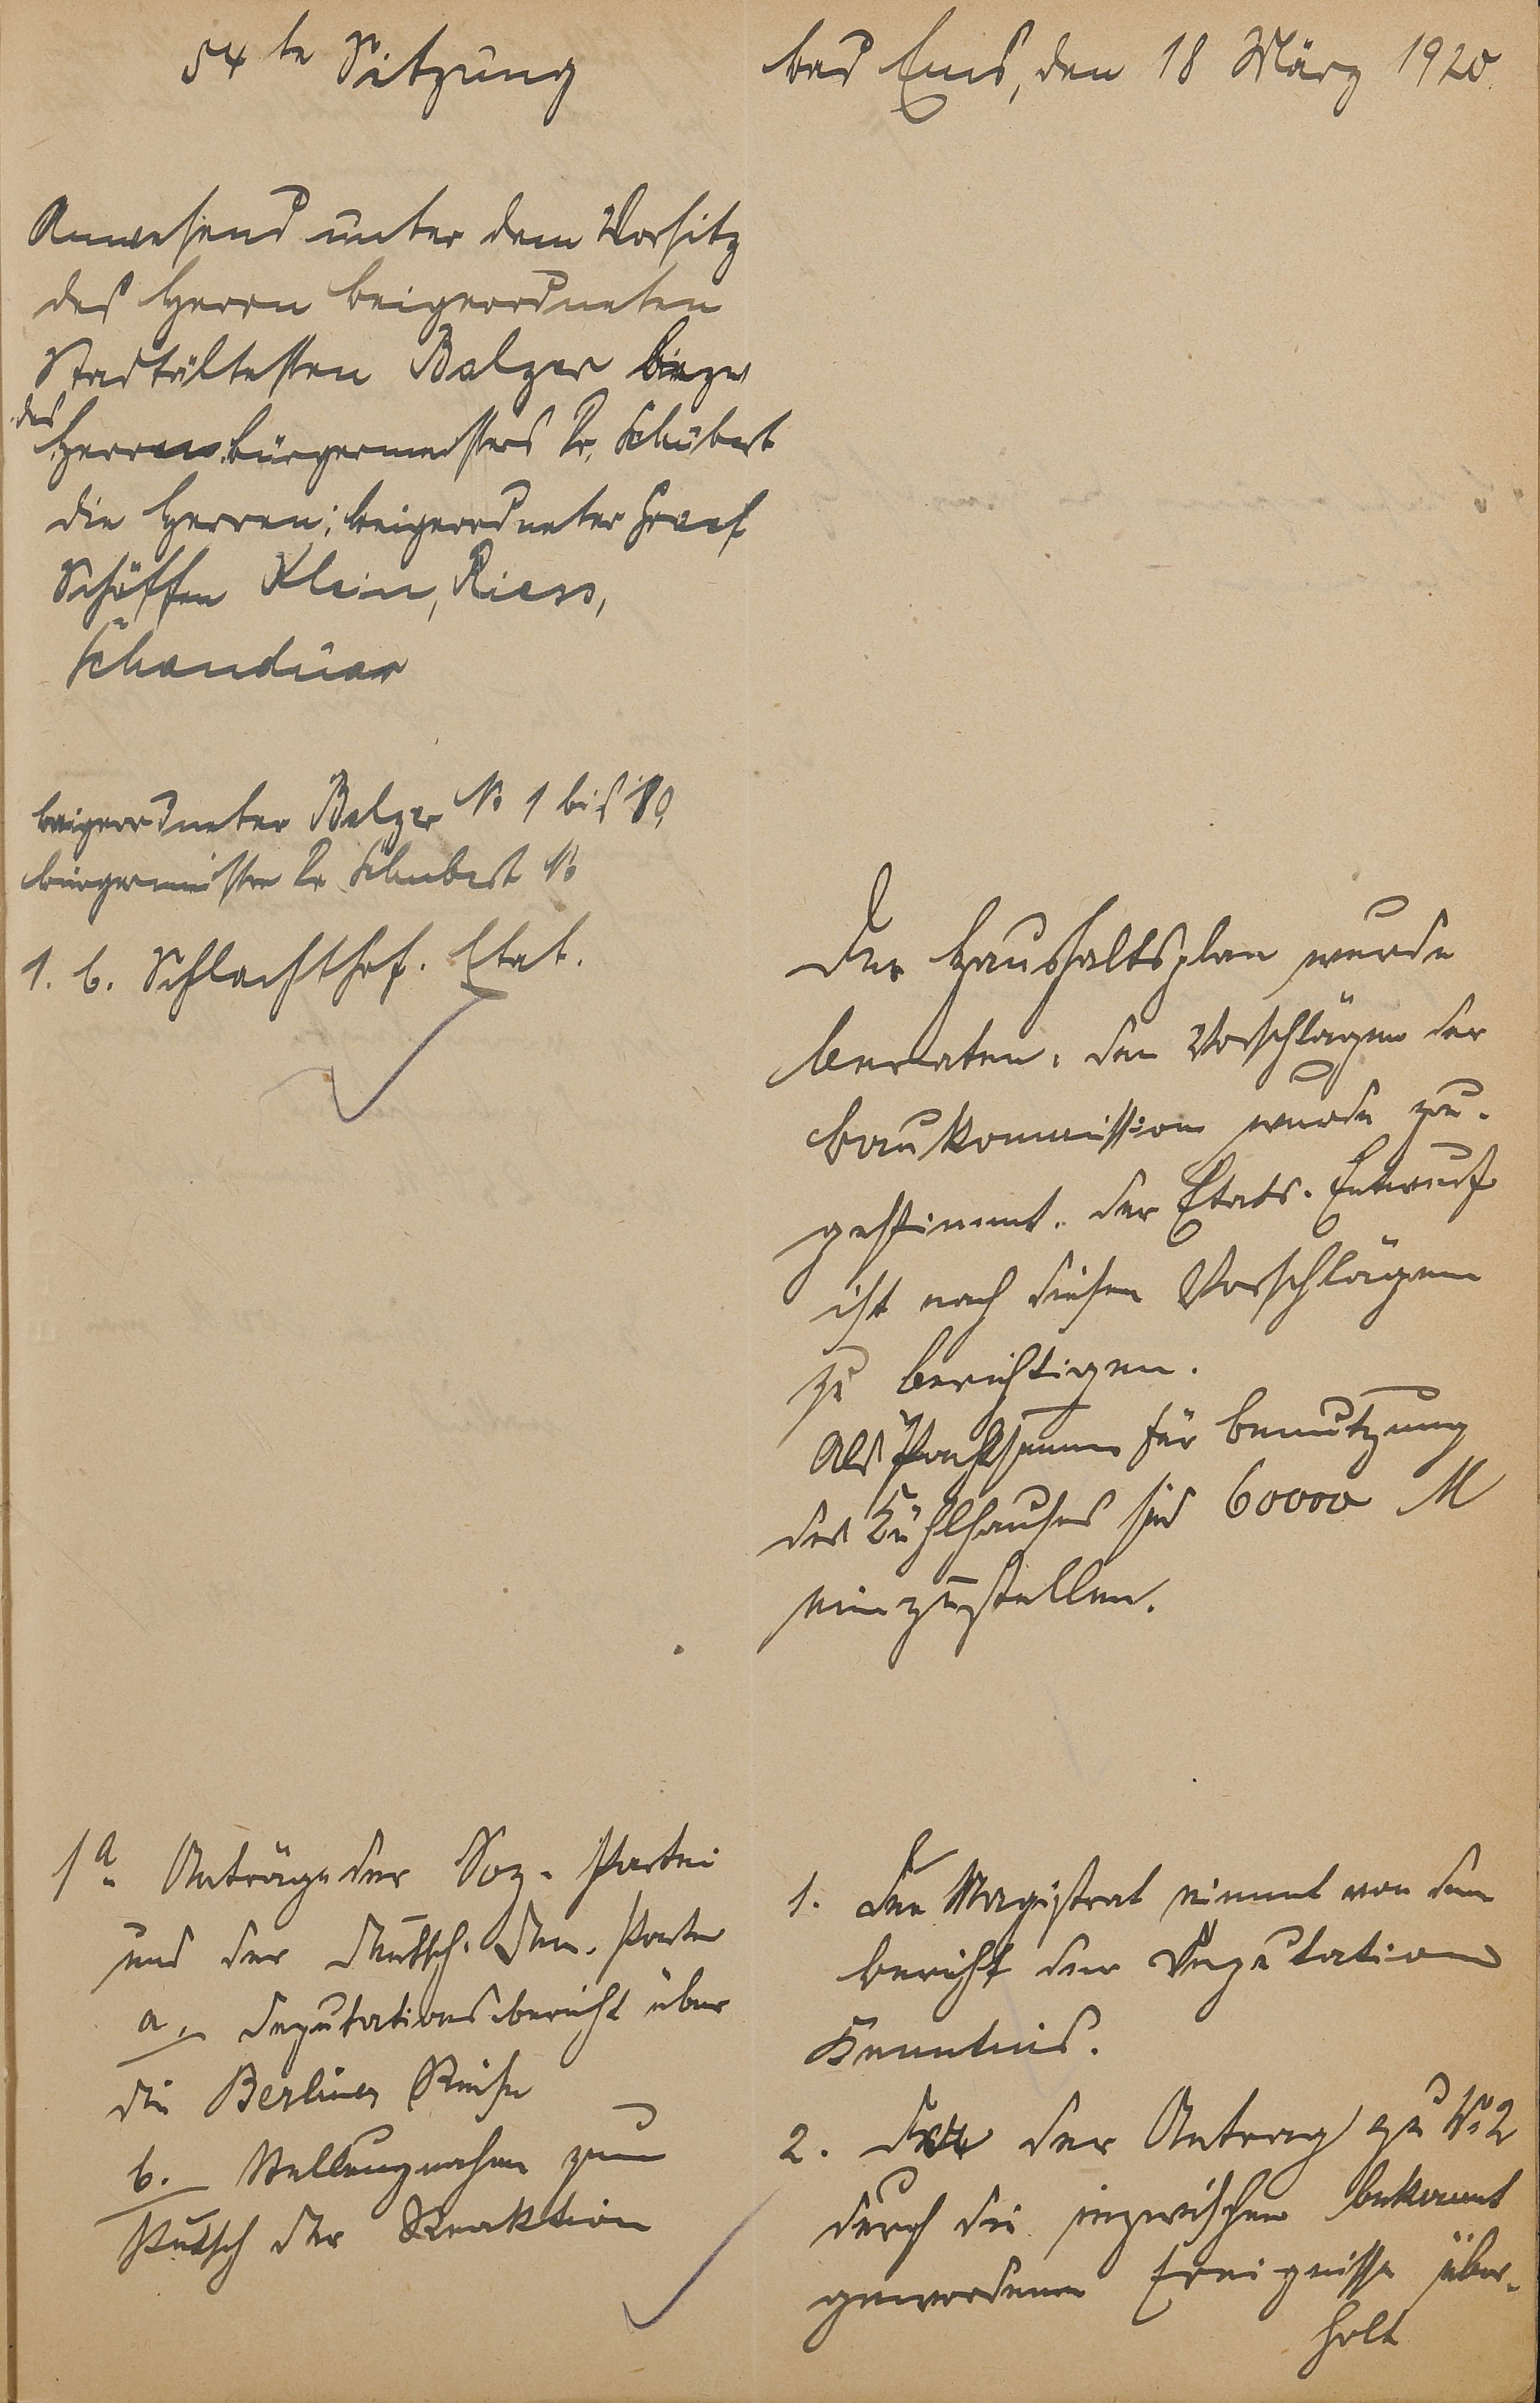 54te Sitzung
Bad Ems, den 18 März 1920.
Anwesend unter dem Vorsitz
des Herrn Beigeordneten
Stadtältesten Balzer bezw
des
Herrn Bürgermeisters Dr. Schubert
die Herren: Beigeordneter Graef
Schöffen Klein, Riess,
Schanduar
Beigeordneter Balzer No 1 bis 8,
Bürgermeister Dr Schubert No
1. b. Schlachthof. Etat.
Der Haushaltsplan wurde
beraten. Den Vorschlägen der
Baukommission wurde zu-
gestimmt. Der Etats-Entwurf
ist nach diesen Vorschlägen
zu berichtigen.
Als Pachtsumme für Benutzung
des Kühlhauses sind 60000 M
einzustellen.
1a. Anträge der Soz. Partei
und der deutsch. dem. Partei
a., Deputationsbericht über
die Berliner Reise
b. Stellungnahme zum
Putsch der Reaktion
1. Der Magistrat nimmt von dem
Bericht der Deputation
Kenntnis.
2. der Antrag zu No 2
durch die inzwischen bekannt
gewordenen Ereignisse über-
holt